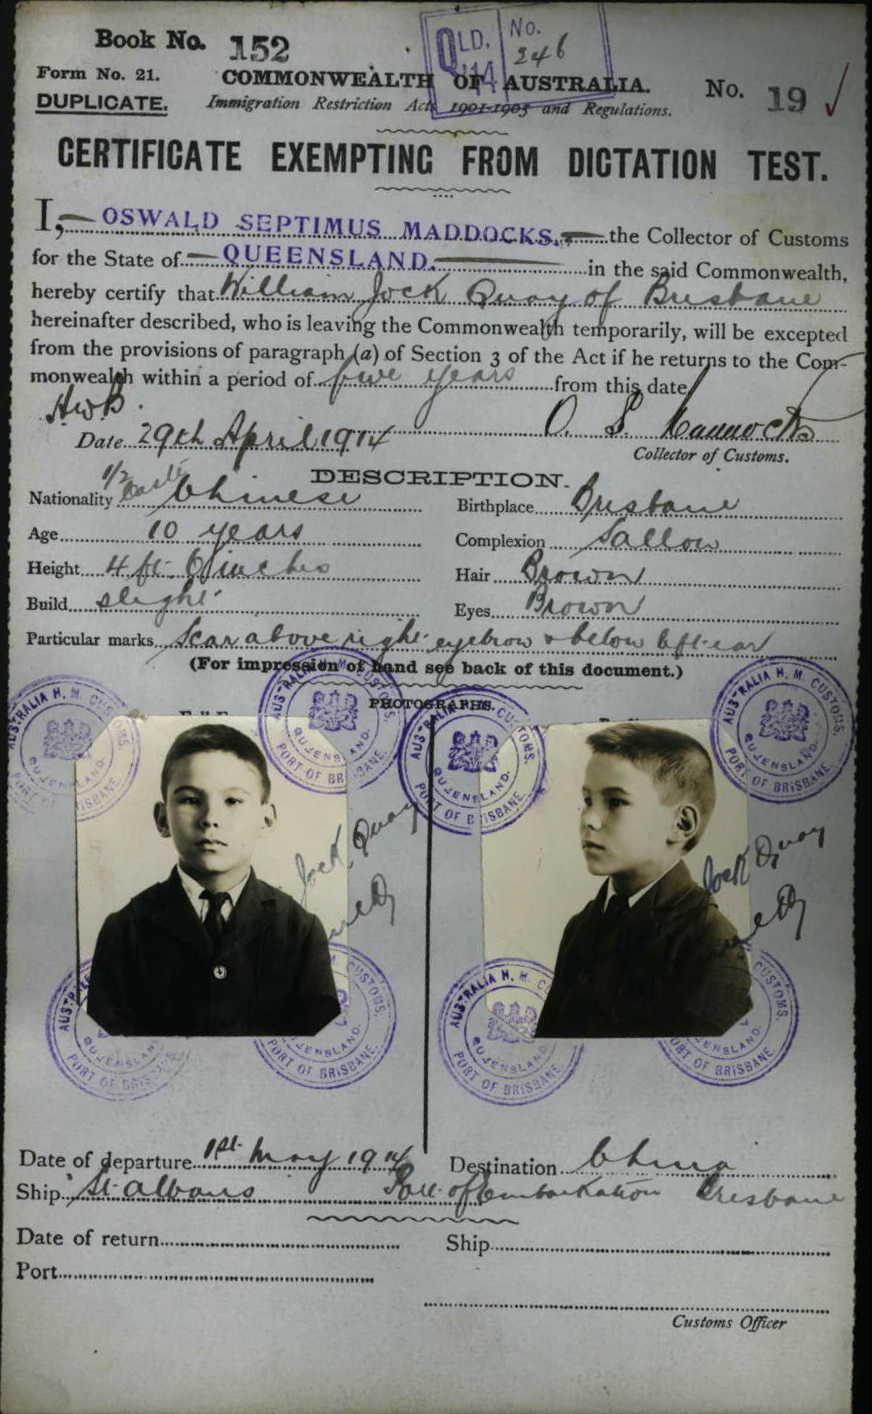 Book No. 152
QLD. No.
'14 246
Form No. 21.
COMMONWEALTH OF AUSTRALIA.
No. 19
DUPLICATE.
Immigration Restriction Acts 1901-1905 and Regulations.
CERTIFICATE EXEMPTING FROM DICTATION TEST.
I, OSWALD SEPTIMUS MADDOCKS, the Collector of Customs
for the State of QUEENSLAND. in the said Commonwealth,
hereby certify that William Jock Quay of Brisbane
hereinafter described, who is leaving the Commonwealth temporarily, will be excepted
from the provisions of paragraph (a) of Section 3 of the Act if he returns to the Com-
monwealth within a period of five years from this date
Date 29th April 1914 O. S. Maddocks
Collector of Customs.
DESCRIPTION.
Nationality 1/2 caste Chinese Birthplace Brisbane
Age 10 years Complexion Sallow
Height 4 ft 6 inches Hair Brown
Build slight Eyes Brown
Particular marks Scar above right eyebrow & below left ear
(For impression of hand see back of this document.)
PHOTOGRAPHS.
AUSTRALIA H. M. CUSTOMS. QUEENSLAND. PORT OF BRISBANE
AUSTRALIA H. M. CUSTOMS. QUEENSLAND. PORT OF BRISBANE
AUSTRALIA H. M. CUSTOMS. QUEENSLAND. PORT OF BRISBANE
AUSTRALIA H. M. CUSTOMS. QUEENSLAND. PORT OF BRISBANE
Jock Quay
Jock Quay
AUSTRALIA QUEENSLAND PORT OF BRISBANE
M. CUSTOMS. QUEENSLAND. PORT OF BRISBANE
AUSTRALIA H. M. C QUEENSLAND PORT OF BRISBANE
CUSTOMS. QUEENSLAND. PORT OF BRISBANE
Date of departure 1st May 1914 Destination China
Ship St Albans Port of Embarkation Brisbane
Date of return Ship
Port
Customs Officer